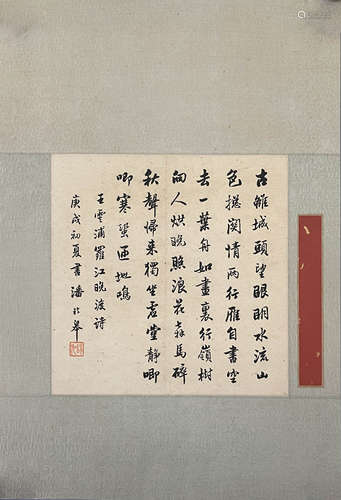 古雒城頭望眼明水流山
色總關情兩行雁自書空
去一葉舟如畫裏行嶺樹
向人烘晚照浪花奔馬碎
秋聲歸來獨坐虛堂靜唧
唧寒蛩匝地鳴
王雲浦羅江晚渡詩
庚戌初夏書潘